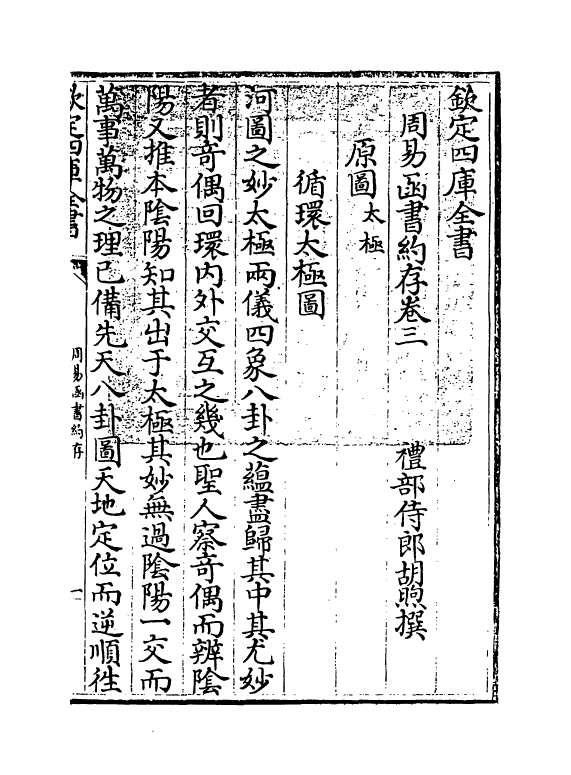 欽定四庫全書
周易函書約存卷三
禮部侍郎胡煦撰
原圖太極
循環太極圖
河圖之妙太極兩儀四象八卦之蘊盡歸其中其尤妙
者則奇偶回環内外交互之幾也聖人察奇偶而辨陰
陽又推本陰陽知其出于太極其妙無過陰陽一交而
萬事萬物之理已備先天八卦圖天地定位而逆順往
欽定四庫全書
周易函書約存
一